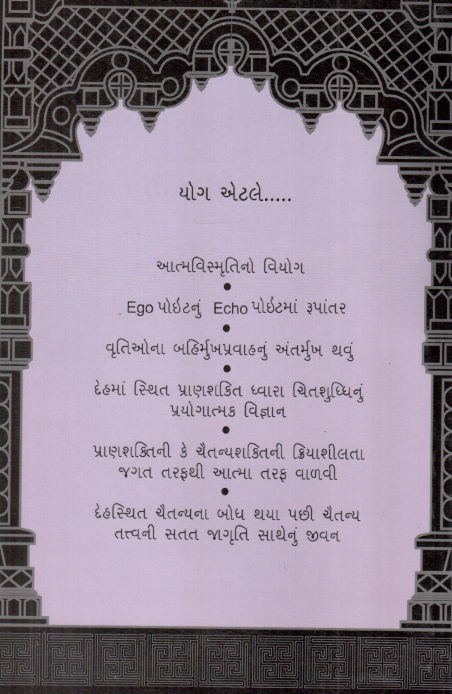 યોગ એટલે.....
આત્મવિસ્મૃતિનો વિયોગ
●
Ego પોઇંટનું Echo પોઇંટમાં રૂપાંતર
●
વૃતિઓના બહિર્મુખપ્રવાહનું અંતર્મુખ થવું
●
દેહમાં સ્થિત પ્રાણશકિત ધ્વારા ચિતશુધ્ધિનું
પ્રયોગાત્મક વિજ્ઞાન
●
પ્રાણશક્તિની કે ચૈતન્યશક્તિની ક્રિયાશીલતા
જગત તરફથી આત્મા તરફ વાળવી
●
દેહસ્થિત ચૈતન્યના બોધ થયા પછી ચૈતન્ય
તત્ત્વની સતત જાગૃતિ સાથેનું જીવન